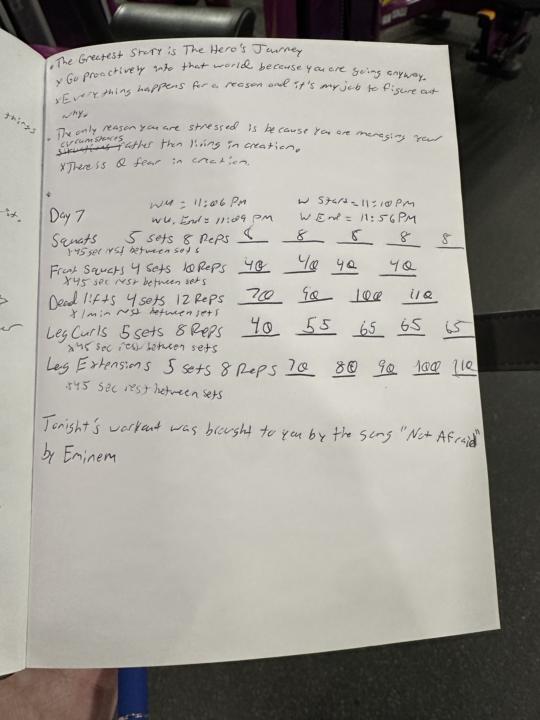 things
it.
• The Greatest Story is The Hero's Journey
x Go proactively into that world because you are going anyway.
x Everything happens for a reason and it's my job to figure out
why.
• The only reason you are stressed is because you are managing your
circumstances
situations rather then living in creation.
x There is 0 fear in creation.
Day 7
WU = 11:06 PM W Start = 11:10 PM
WU. End = 11:09 PM W End = 11:56 PM
Squats 5 sets 8 Reps 8 8 8 8 8
x45 sec rest between sets
Front Squats 4 sets 10 Reps 40 40 40 40
x45 sec rest between sets
Dead lifts 4 sets 12 Reps 70 90 100 110
x1 min rest between sets
Leg Curls 5 sets 8 Reps 40 55 65 65 65
x45 sec rest between sets
Leg Extensions 5 sets 8 Reps 70 80 90 100 110
x45 sec rest between sets
Tonight's workout was brought to you by the song "Not Afraid"
by Eminem